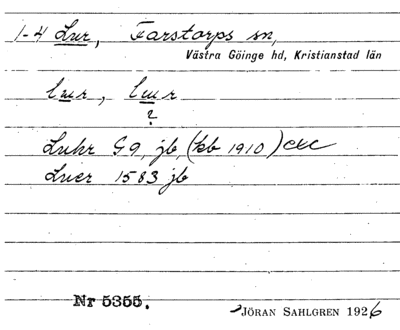 1-4 Lur, Farstorps sn,
Västra Göinge hd, Kristianstad län
lɯr, lɯr
?
Luhr G9, jb, (kb 1910) etc
Luer 1583 jb
Nr 5355.
JÖRAN SAHLGREN 1926